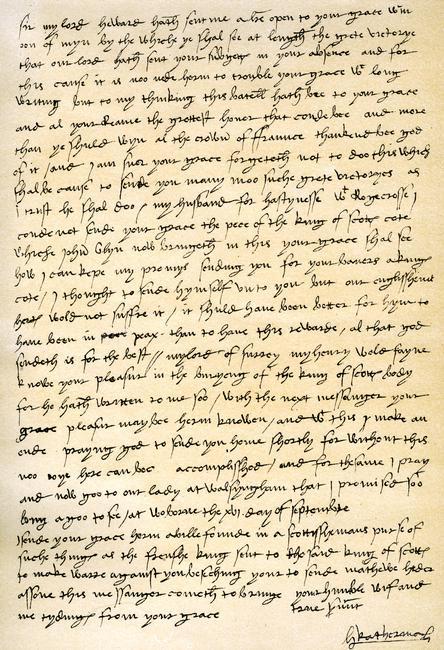 Sir my lord howard hath sent me a lre open to your grace wtin
oon of myn by the whiche ye shal see at length the grete victorye
that our lord hath sent your subgetts in your absence and for
this cause it is noo nede herin to trouble your grace wt long
writing but to my thinking this batell hath bee to your grace
and al your reame the grettest honor that coude bee and more
than ye shuld wyn al the crown of ffraunce thanked bee god
of it and I am suer your grace forgeteth not to doo this which
shal be cause to sende you many moo suche grete victoryes as
I trust he shal doo / my husband for hastynesse wt Rogecrosse I
coude not sende your grace the pece of the king of scotts cote
whiche John Glyn now bringeth in this your grace shal see
how I can kepe my promys sending you for your baners a kings
cote / I thought to sende hymself vnto you but our englisshmens
herts wold not suffre it / it shuld have been better for hym to
have been in peax than to have this rewarde / al that god
sendeth is for the best // my lord of surrey my henry wold fayne
knowe your pleasur in the buryeng of the king of scotts body
for he hath writen to me soo / with the next messanger your
grace pleasur may bee herin knowen / and wt this I make an
ende praying god to sende you home shortly for without this
noo joye here can bee accomplisshed / and for the same I pray
and now goo to our lady at walsyngham that I promised soo
long agoo to see / at woborne the xvi day of septembre
I sende your grace herin a bille founde in a scottisshemans purse of
suche things as the frenshe king sent to the said king of scotts
to make warre against you beseching your to sende mathewe heder
assone this messanger cometh to bringe me tydings from your grace
your humble wif and
true svunt
Katherine